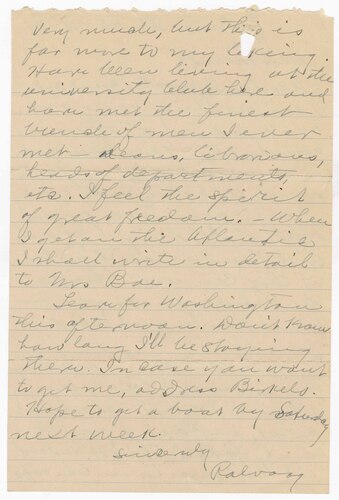 very much, but this is
far more to my liking.
Have been living at the
university Club here and
have met the finest
bunch of men I ever
met - deans, librarians,
heads of departments,
etc. I feel the spirit
of great freedom. - When
I get on the Atlantic
I shall write in detail
to Mrs Bae.
Leave for Washington
this afternoon. Don't know
how long I'll be staying
there. In case you want
to get me, address Bickels.
Hope to get a boat by Saturday
next week.
Sincerely